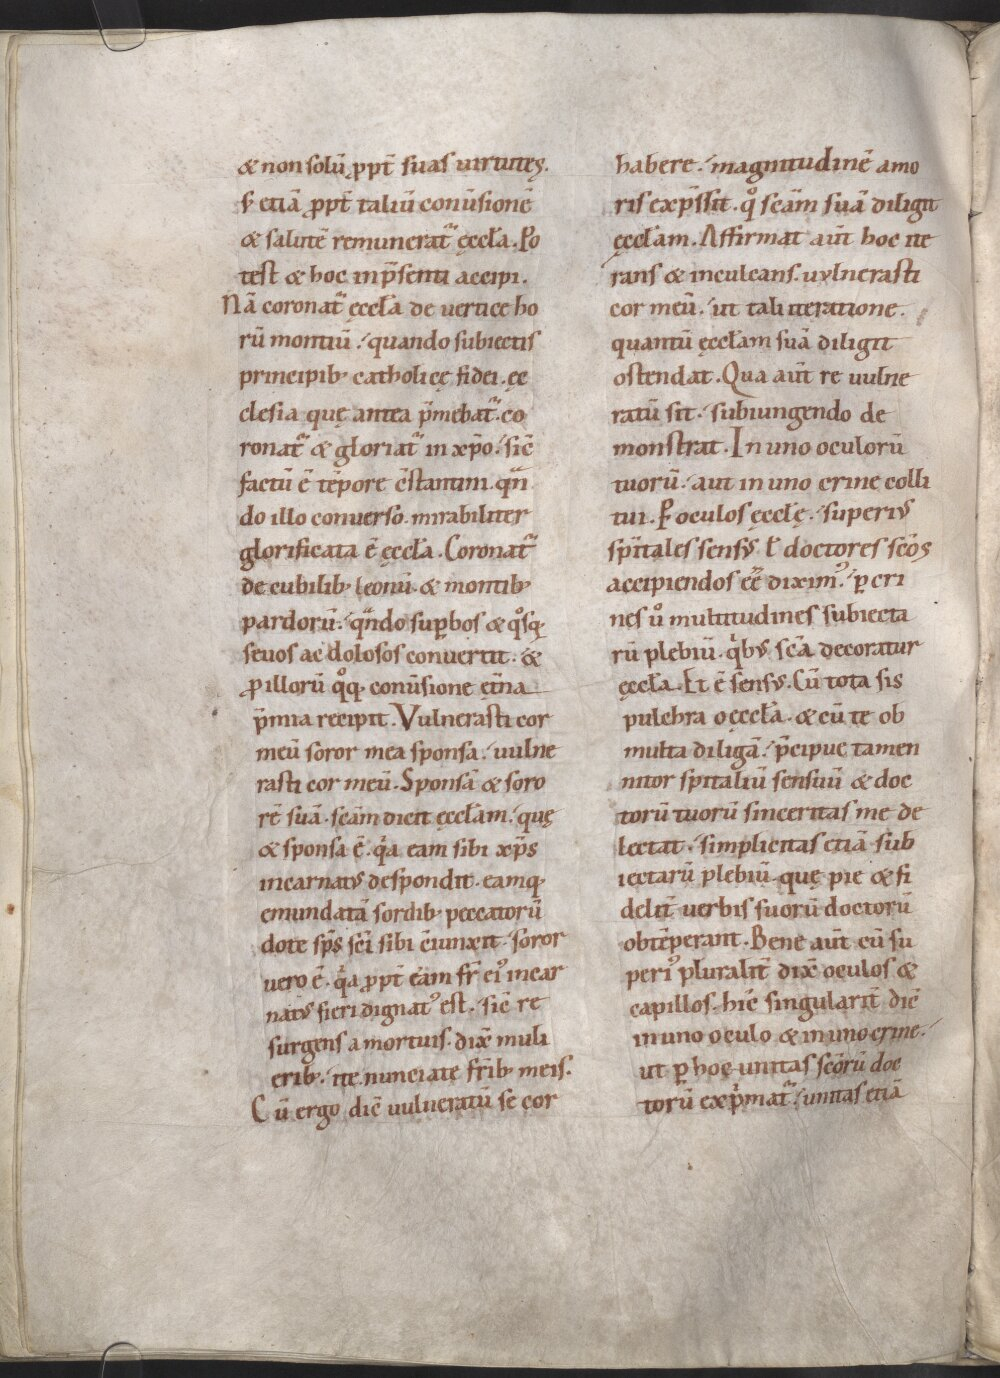 & non solū ꝓpt̄ suas uirtutes.
s; etiā ꝓpt̄ taliū conūsione̅
& salutē remunerat᷑ ęccła. Po
test & hoc in p̄senti accipi.
Nā coronat᷑ ęccła de uertice ho
rū montiū. quando subiectis
principib; catholicę fidei. ęc
clesia quę antea p̄mebat᷑. co
ronat᷑ & gloriat᷑ in xp̄o. sic̄
factū ē tēpore c̄stantini. qn̄
do illo conuerso. mirabiliter
glorificata ē ęccła. Coronat᷑
de cubilib; leonū. & montib;
pardorū. qn̄do sup̱bos & qͦsq;
seuos ac dolosos conuertit. &
ꝓ illorū qͦq; conūsione ęt̄na
p̄mia recipit. Vulnerasti cor
meū soror mea sponsa. uulne
rasti cor meū. Sponsā & soro
rē suā. sc̄am dicit ęccłam. quę
& sponsa ē. qͥa eam sibi xp̄s
incarnatꝰ despondit. eamq;
emundatā sordib; peccatorū
dote sp̄s sc̄i sibi c̄iunxit. soror
uero ē. qͥa ꝓpt̄ eam fr̄ eiꝰ incar
natꝰ fieri dignatꝰ est. sic̄ re
surgens a mortuis. dix̄ muli
erib;. ite nunciate fr̄ib; meis.
Cū ergo dic̄ uulneratū se cor
habere. magnitudinē amo
ris exp̄ssit. qͦ sc̄am suā diligit
ęccłam. Affirmat aut̄ hoc ite
rans & inculcans. uulnerasti
cor meū. ut tali iteratione.
quantū ęccłam suā diligit
ostendat. Qua aut̄ re uulne
ratū sit. subiungendo de
monstrat. In uno oculorū
tuorū. aut in uno crine colli
tui. P oculos ęccłę. superiꝰ
sp̄itales sensꝰ ł doctores sc̄os
accipiendos ēē diximꝰ. ꝑ cri
nes uͦ multitudines subiecta
rū plebiū. qͥbꝰ sc̄a decoratur
ęccła. Et ē sensꝰ. Cū tota sis
pulchra o ęccła. & cū te ob
multa diligā. p̄cipue tamen
nitor sp̄italiū sensuū & doc
torū tuorū sinceritas me de
lectat. simplicitas etiā sub
iectarū plebiū. quę pie & fi
delit̄ uerbis suorū doctorū
obtēperant. Bene aut̄ cū su
periꝰ pluralit̄ dix̄ oculos &
capillos. hic̄ singularit̄ dic̄
in uno oculo & in uno crine.
ut ꝑ hoc unitas sc̄orū doc
torū exp̄mat᷑. unitas etiā